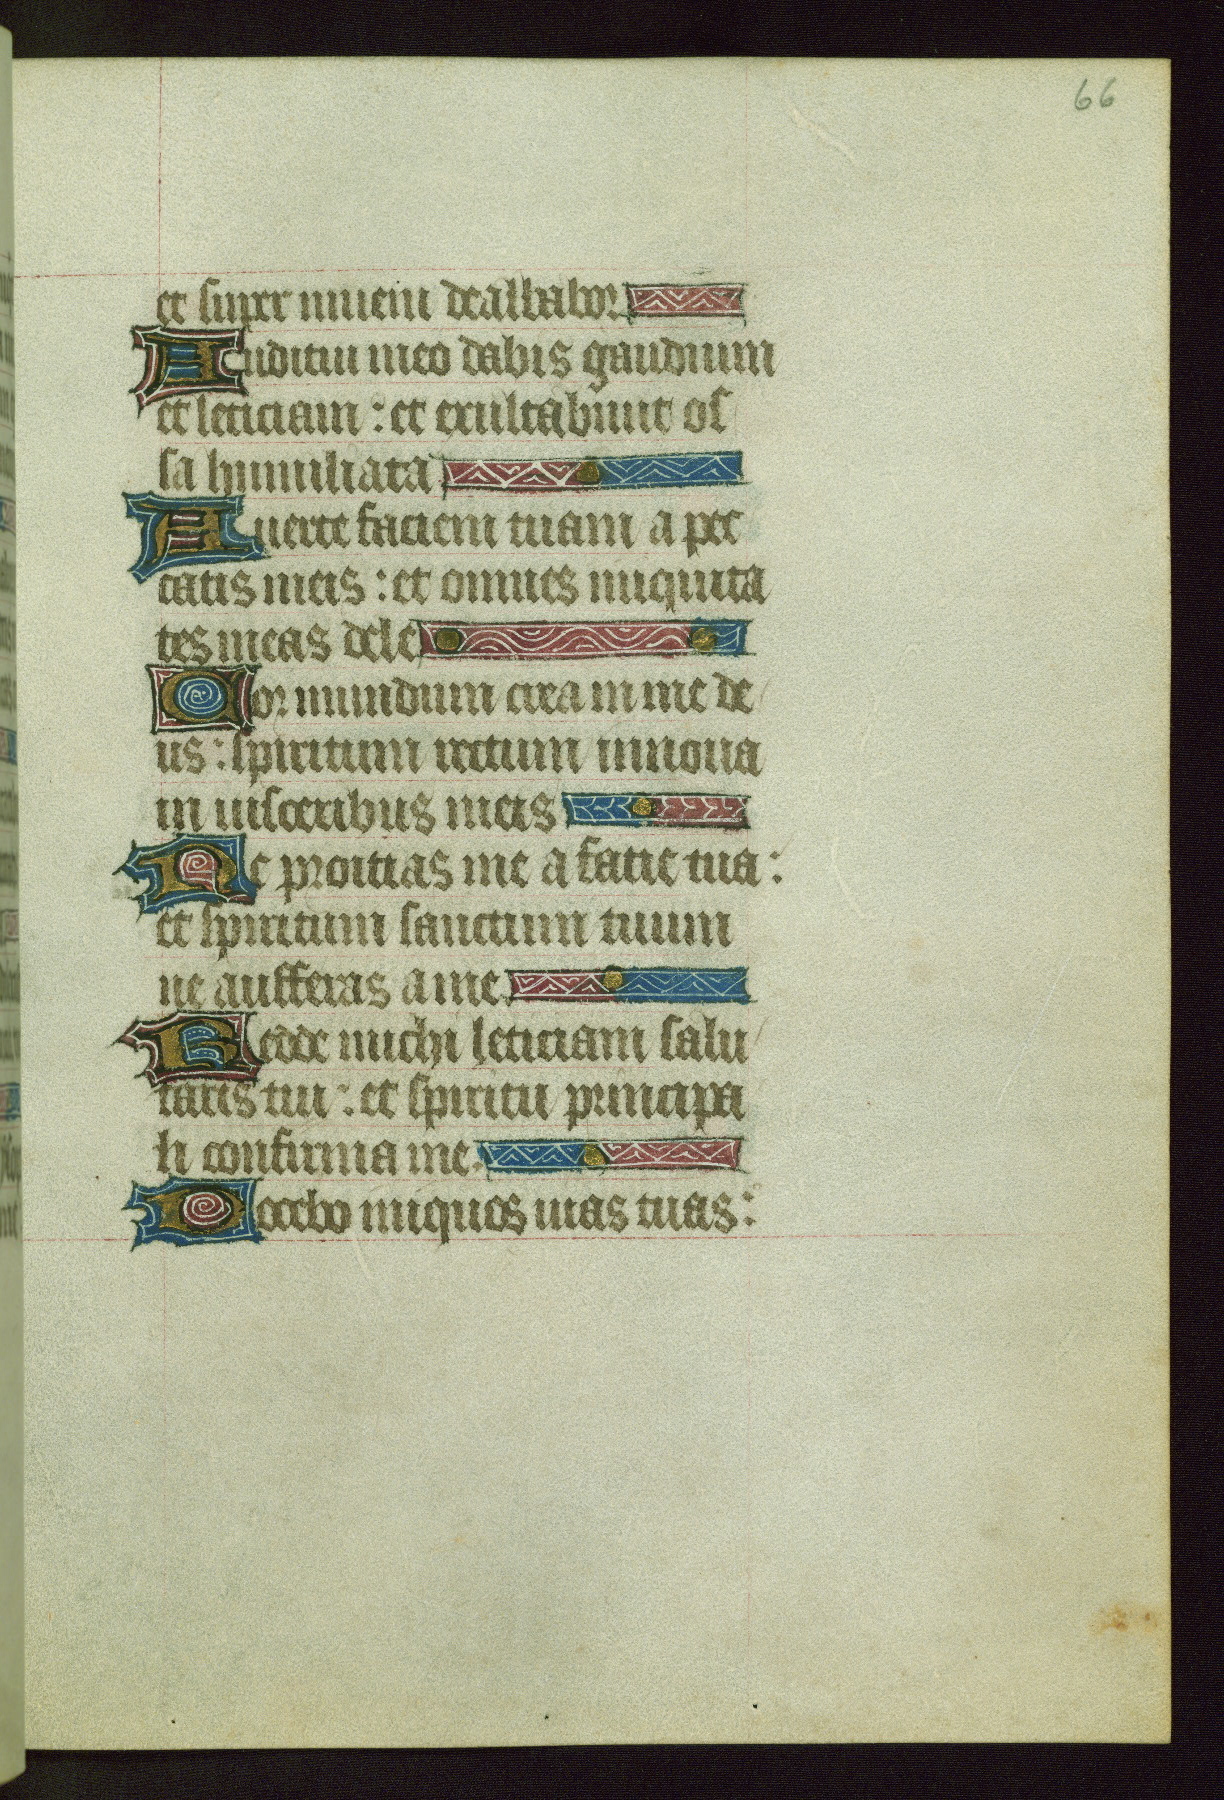 66
et super niuem dealbabor
Auditui meo dabis gaudium
et leticiam : et exultabunt os
sa humiliata
Auerte faciem tuam a pec
catis meis : et omnes iniquita
tes meas dele
Cor mundum crea in me de
us : spiritum rectum innoua
in uisceribus meis
Ne proicias me a facie tua :
et spiritum sanctum tuum
ne aufferas a me.
Redde michi leticiam salu
taris tui : et spiritu principa
li confirma me.
Docebo iniquos uias tuas :